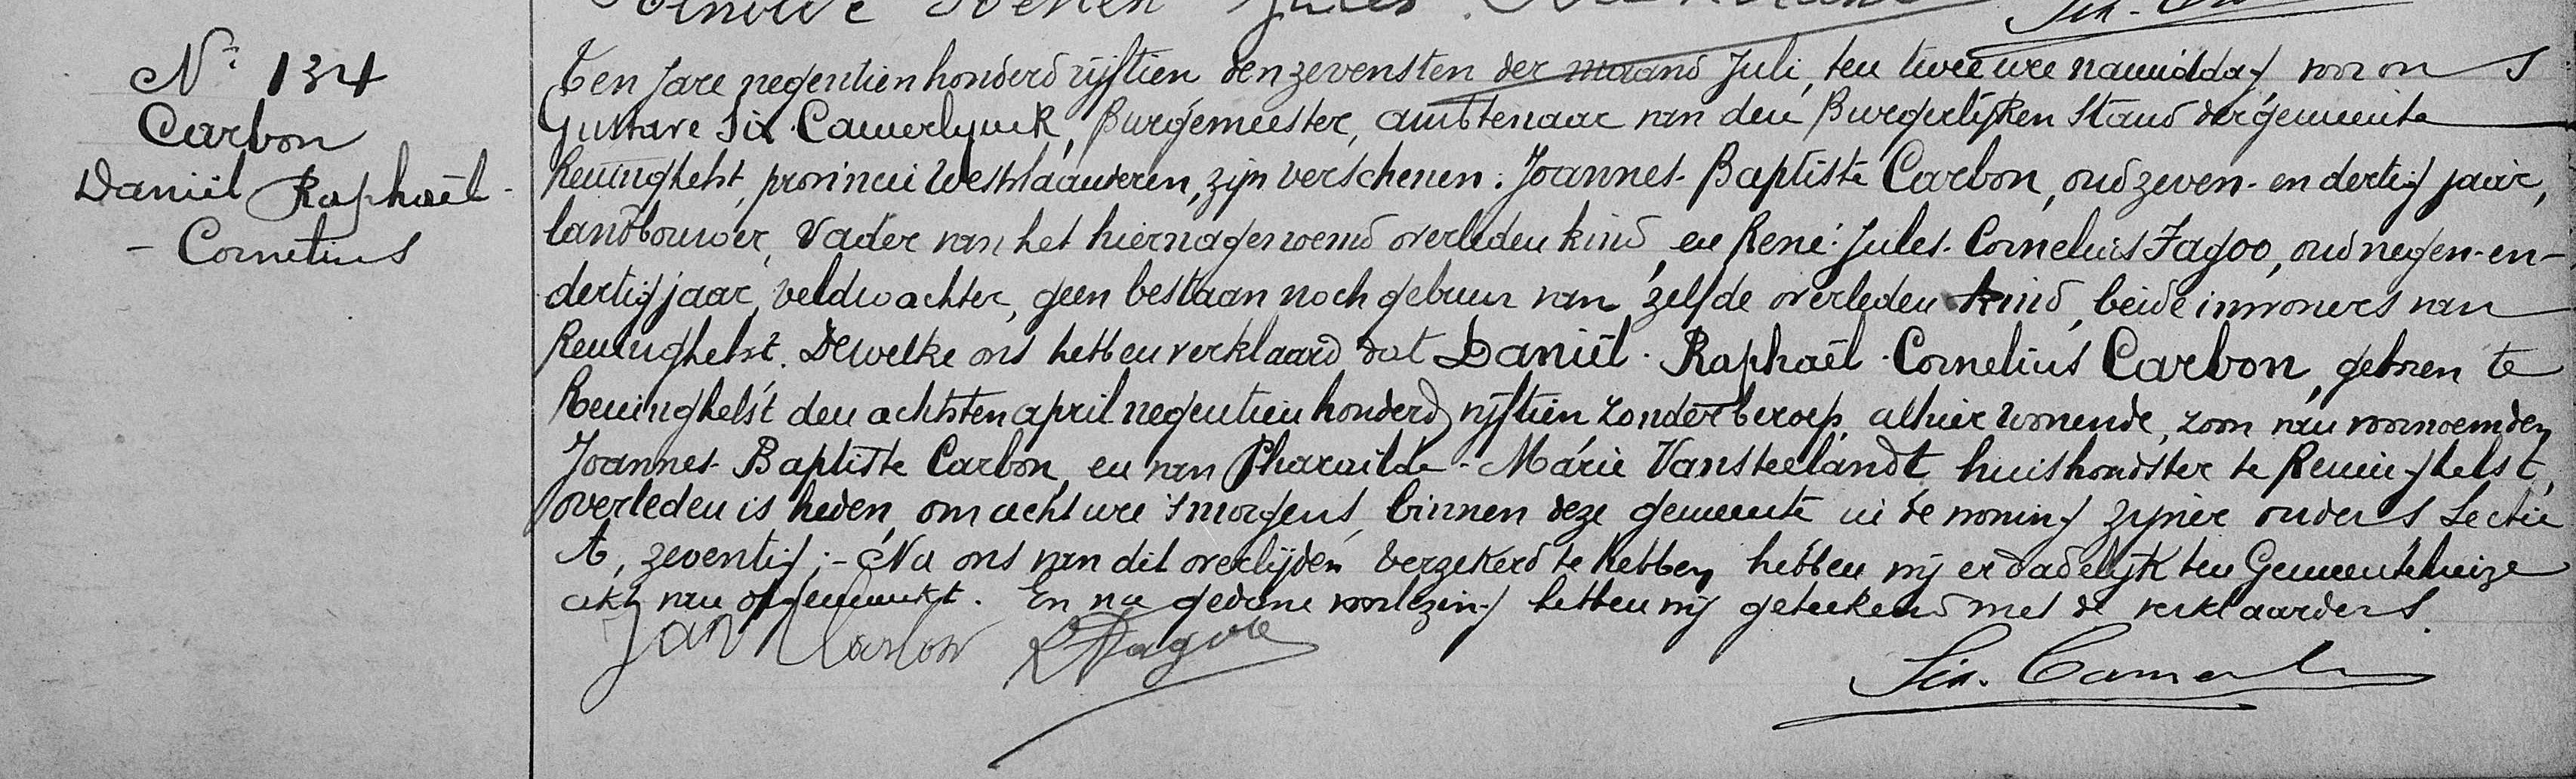 Nr 134
Carbon
Daniël Raphaël-
- Cornelius
Ten jare negentienhonderd vijftien den zevensten der maand Juli, ten twee ure namiddag voor ons
Gustave Six-Camerlynck, Burgemeester, ambtenaar van den Burgerlijken Stand der gemeente
Reninghelst, provincie Westvlaanderen, zijn verschenen: Joannes-Baptiste Carbon, oud zeven-en dertig jaar,
landbouwer, Vader van het hiernagenoemd overleden kind en René-Jules-Cornelius Fagoo, oud negen-en-
dertig jaar, veldwachter, geen bestaan noch gebuur van 'zelfde overleden kind, beide inwoners van
Reninghelst. Dewelke ons hebben verklaard dat Daniël-Raphaël-Cornelius Carbon, geboren te
Reninghelst den achtsten april negentien honderd vijftien zonder beroep, alhier wonende, zoon van voornoemden
Joannes-Baptiste Carbon, en van Pharaïlde-Marie Vansteelandt huishoudster te Reninghelst,
overleden is, heden, om acht ure 's morgens, binnen deze gemeente in de woning zijner ouders Sectie
A, zeventig;- Na ons van dit overlijden verzekerd te hebben hebben wij er dadelijk ten Gemeentehuize
akt van opgemaakt. En na gedane voorlezing hebben wij geteekend met de verklaarders.
Jan Carbon R Fagoo
Six-Camerl